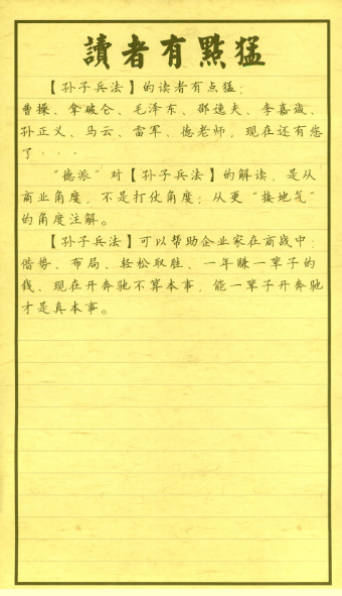 讀者有點猛
【孙子兵法】的读者有点猛：
曹操、拿破仑、毛泽东、邵逸夫、李嘉诚、
孙正义、马云、雷军、德老师，现在还有您
了····
“德派”对【孙子兵法】的解读，是从
商业角度，不是打仗角度；从更“接地气”
的角度注解。
【孙子兵法】可以帮助企业家在商战中：
借势、布局、轻松取胜、一年赚一辈子的
钱、现在开奔驰不算本事，能一辈子开奔驰
才是真本事。